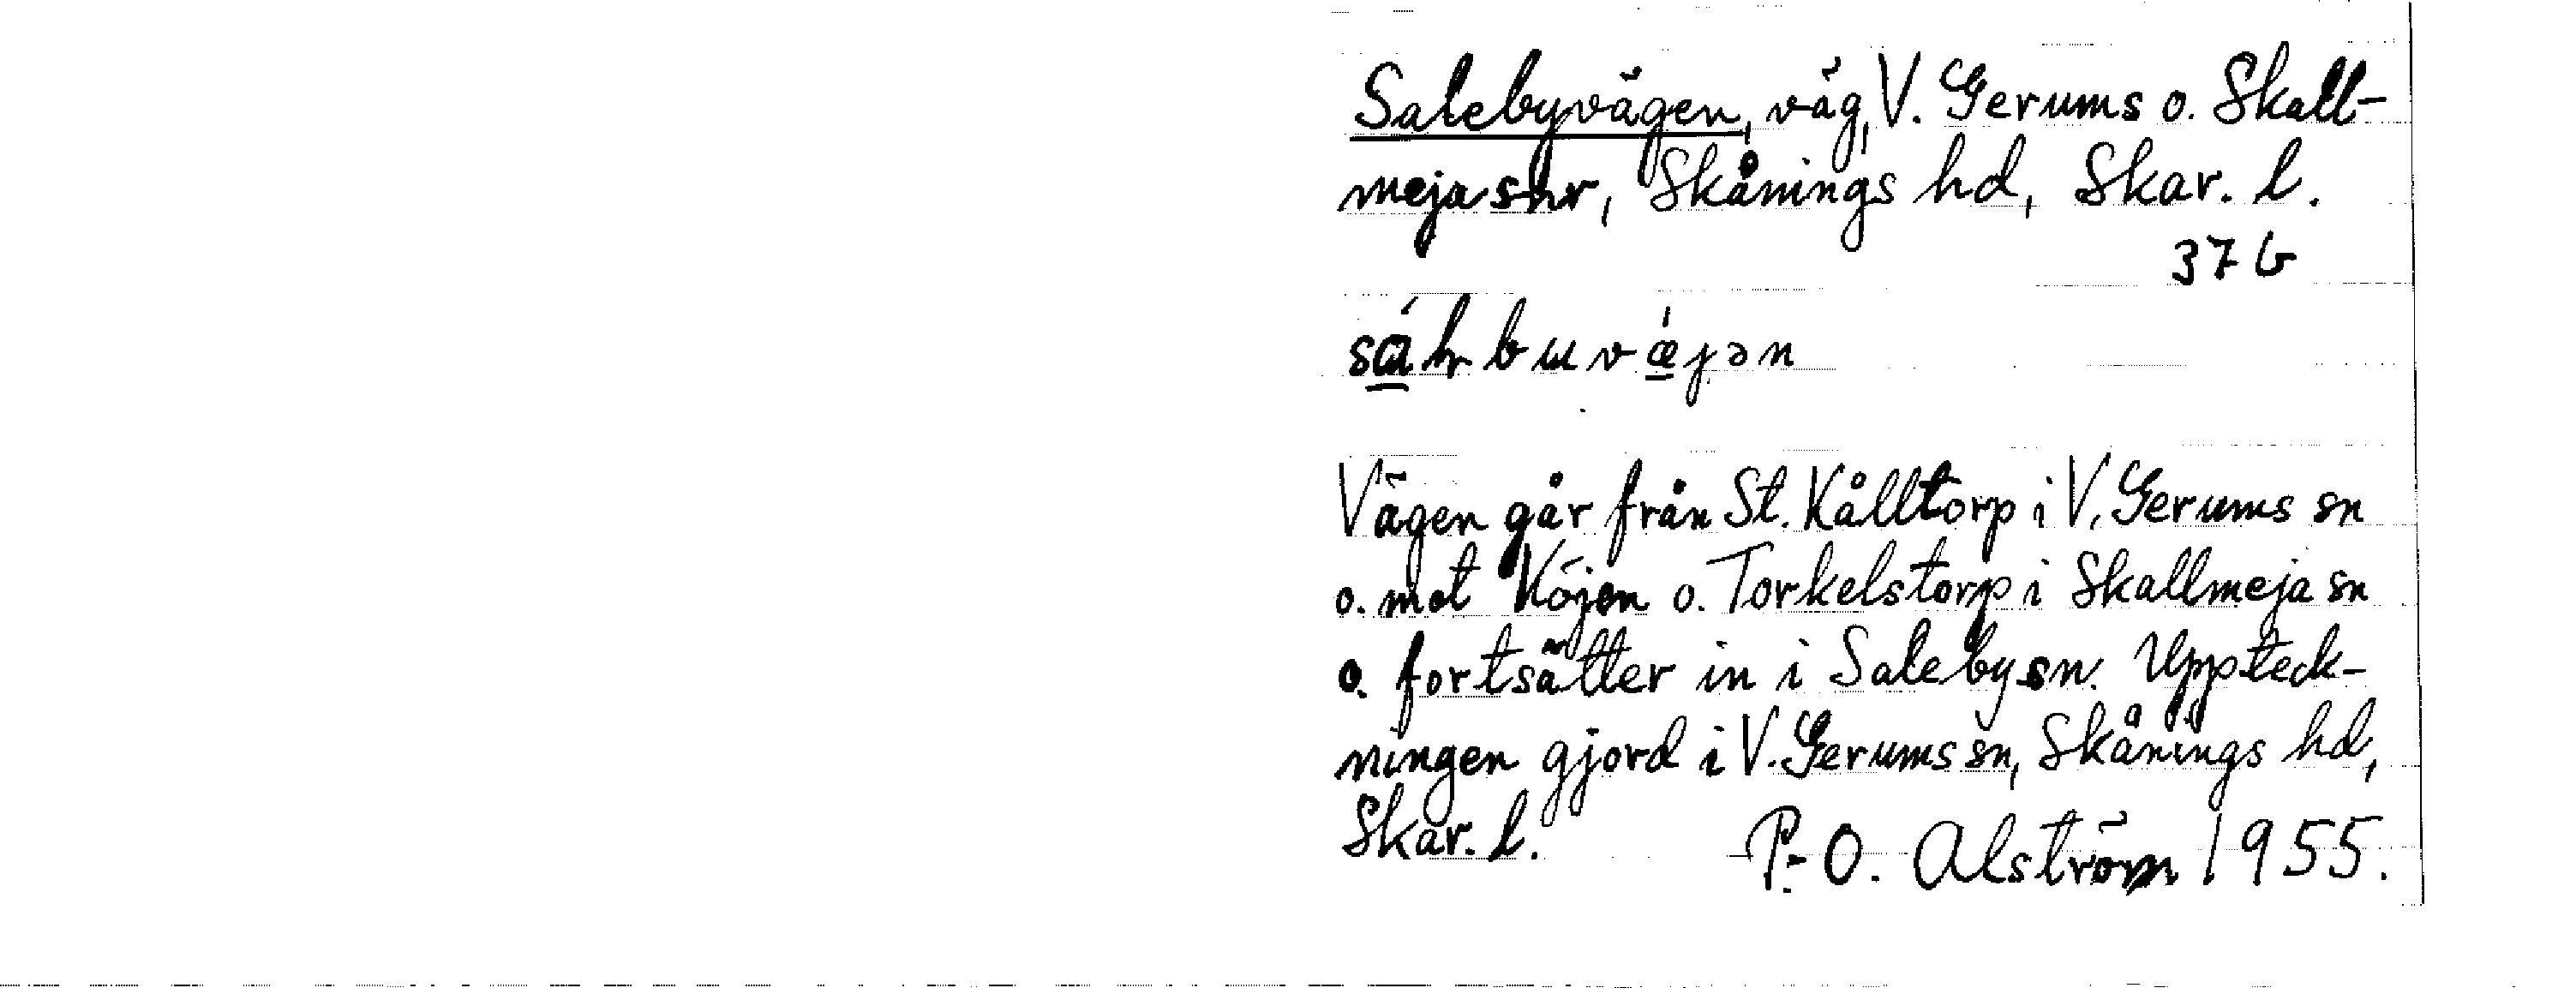 Salebyvägen, väg, V. Gerums o. Skall-
meja snr, Skånings hd, Skar. l.
37 b
Vägen går från St. Kålltorp i V. Gerums sn
o. mot Köjen o. Torkelstorp i Skallmeja sn
o. fortsätter in i Saleby sn. Uppteck-
ningen gjord i V. Gerums sn, Skånings hd,
Skar. l. P.-O. Alström 1955.